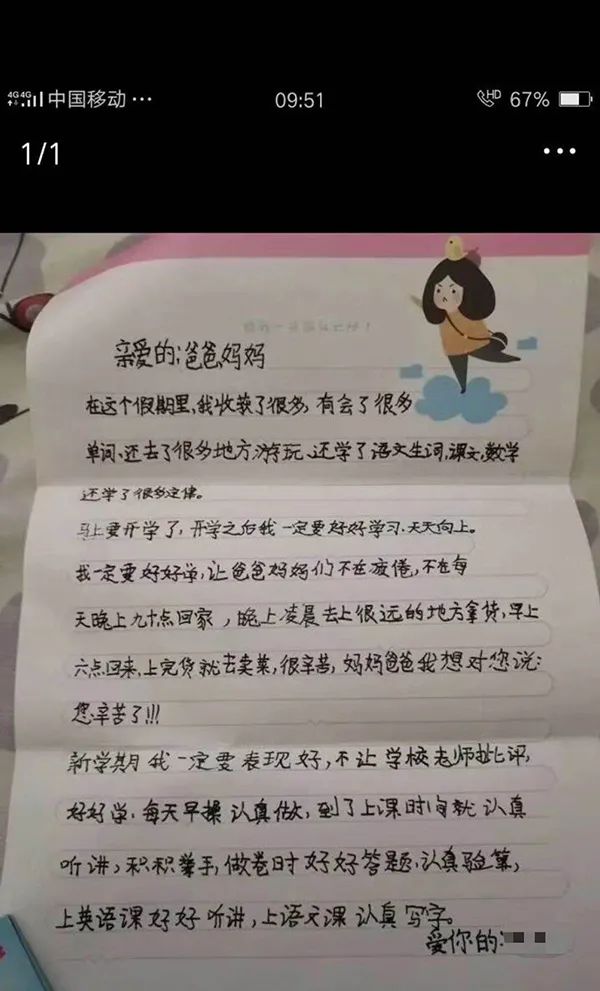 4G 4G 中国移动 ··· 09:51 HD 67%
1/1 ···
亲爱的:爸爸,妈妈
在这个假期里,我收获了很多,有会了很多
单词、还去了很多地方游玩、还学了语文生词,课文,数学
还学了很多定律。
马上要开学了,开学之后我一定要好好学习.天天向上。
我一定要好好学,让爸爸妈妈们不在疲倦,不在每
天晚上九十点回家,晚上凌晨去上很远的地方拿货,早上
六点回来,上完货就去卖菜,很辛苦,妈妈爸爸我想对您说:
您辛苦了!!!
新学期我一定要表现好,不让学校老师批评,
好好学.每天早操认真做,到了上课时间就认真
听讲,积积举手,做卷时好好答题,认真验算,
上英语课好好听讲,上语文课认真写字。
爱你的: